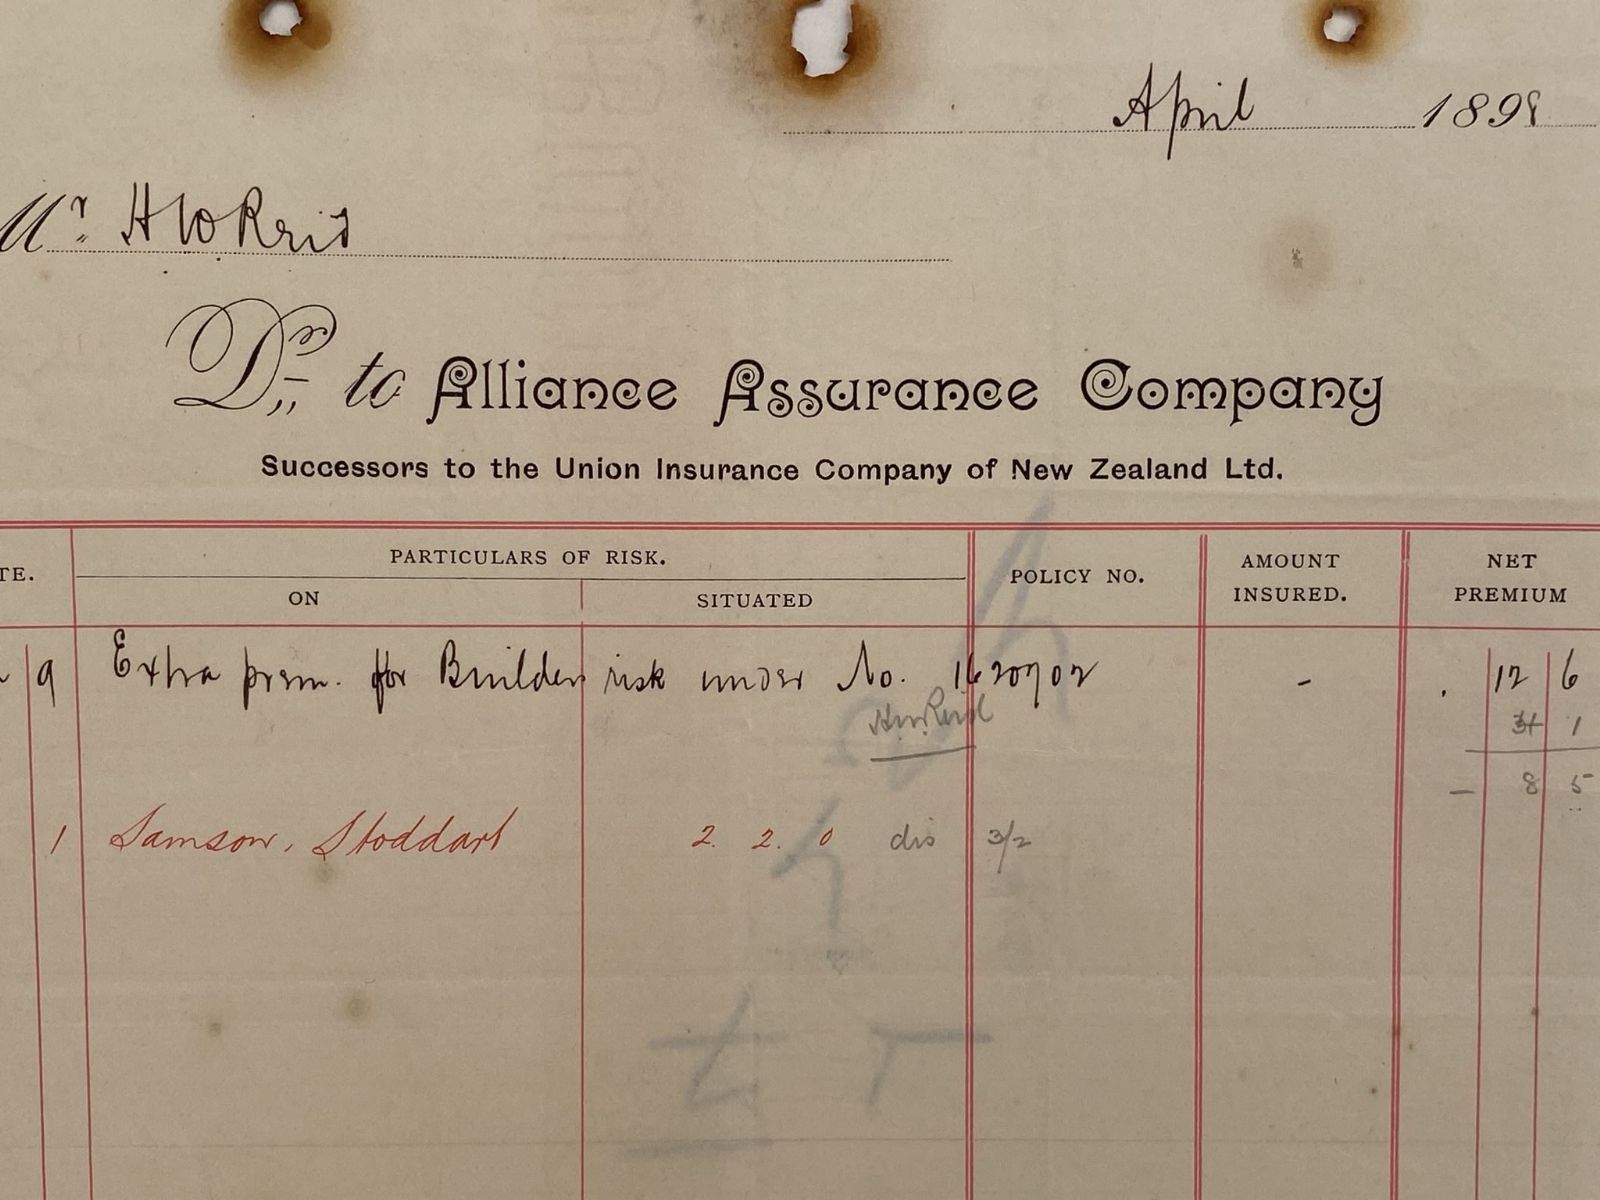 April 189
Mr. H W Reid
Dr. to Alliance Assurance Company
Successors to the Union Insurance Company of New Zealand Ltd.
TE. PARTICULARS OF RISK. POLICY NO. AMOUNT INSURED. NET PREMIUM
ON SITUATED
9 Extra prem. for Builders risk under No. 1620702 - 12 6
HW Reid 1
— 8 5
1 Samson, Stoddart 2. 2. 0 dis 3/2